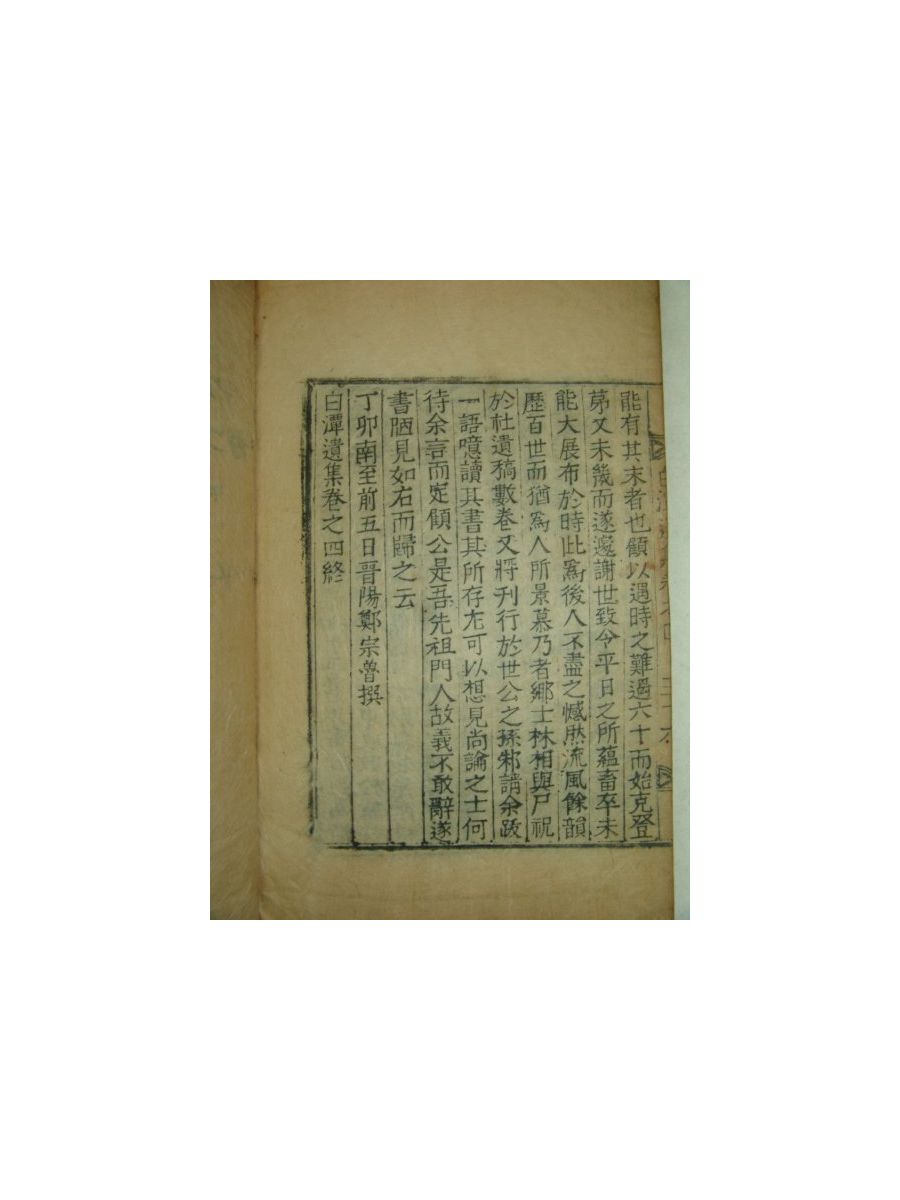 能有其末者也顧以遇時之難過六十而始克登
第又未幾而遂邃謝世致令平日之所蘊畜卒未
能大展布於時此爲後人不盡之憾然流風餘韻
歷百世而猶爲人所景慕乃者鄕士林相與尸祝
於社遺稿數卷又將刊行於世公之孫 請余跋
一語噫讀其書其所存左可以想見尙論之士何
待余言而定顧公是吾先祖門人故義不敢辭遂
書陋見如右而歸之云
丁卯南至前五日晉陽鄭宗魯撰
白潭遺集卷之四終